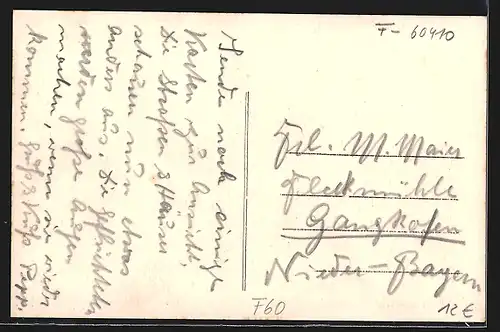 Sende noch einige
Karten zur Ansicht,
Die Straßen & Häuser
schauen nun etwas
anders aus. Die Geflüchteten
werden große Augen
machen, wenn sie wieder
kommen. Gruß & Kuß Peppi.
F- 60410
Frl. M. Maier
Fleckmühle
Gangkofen
Nieder-Bayern
F60
12€